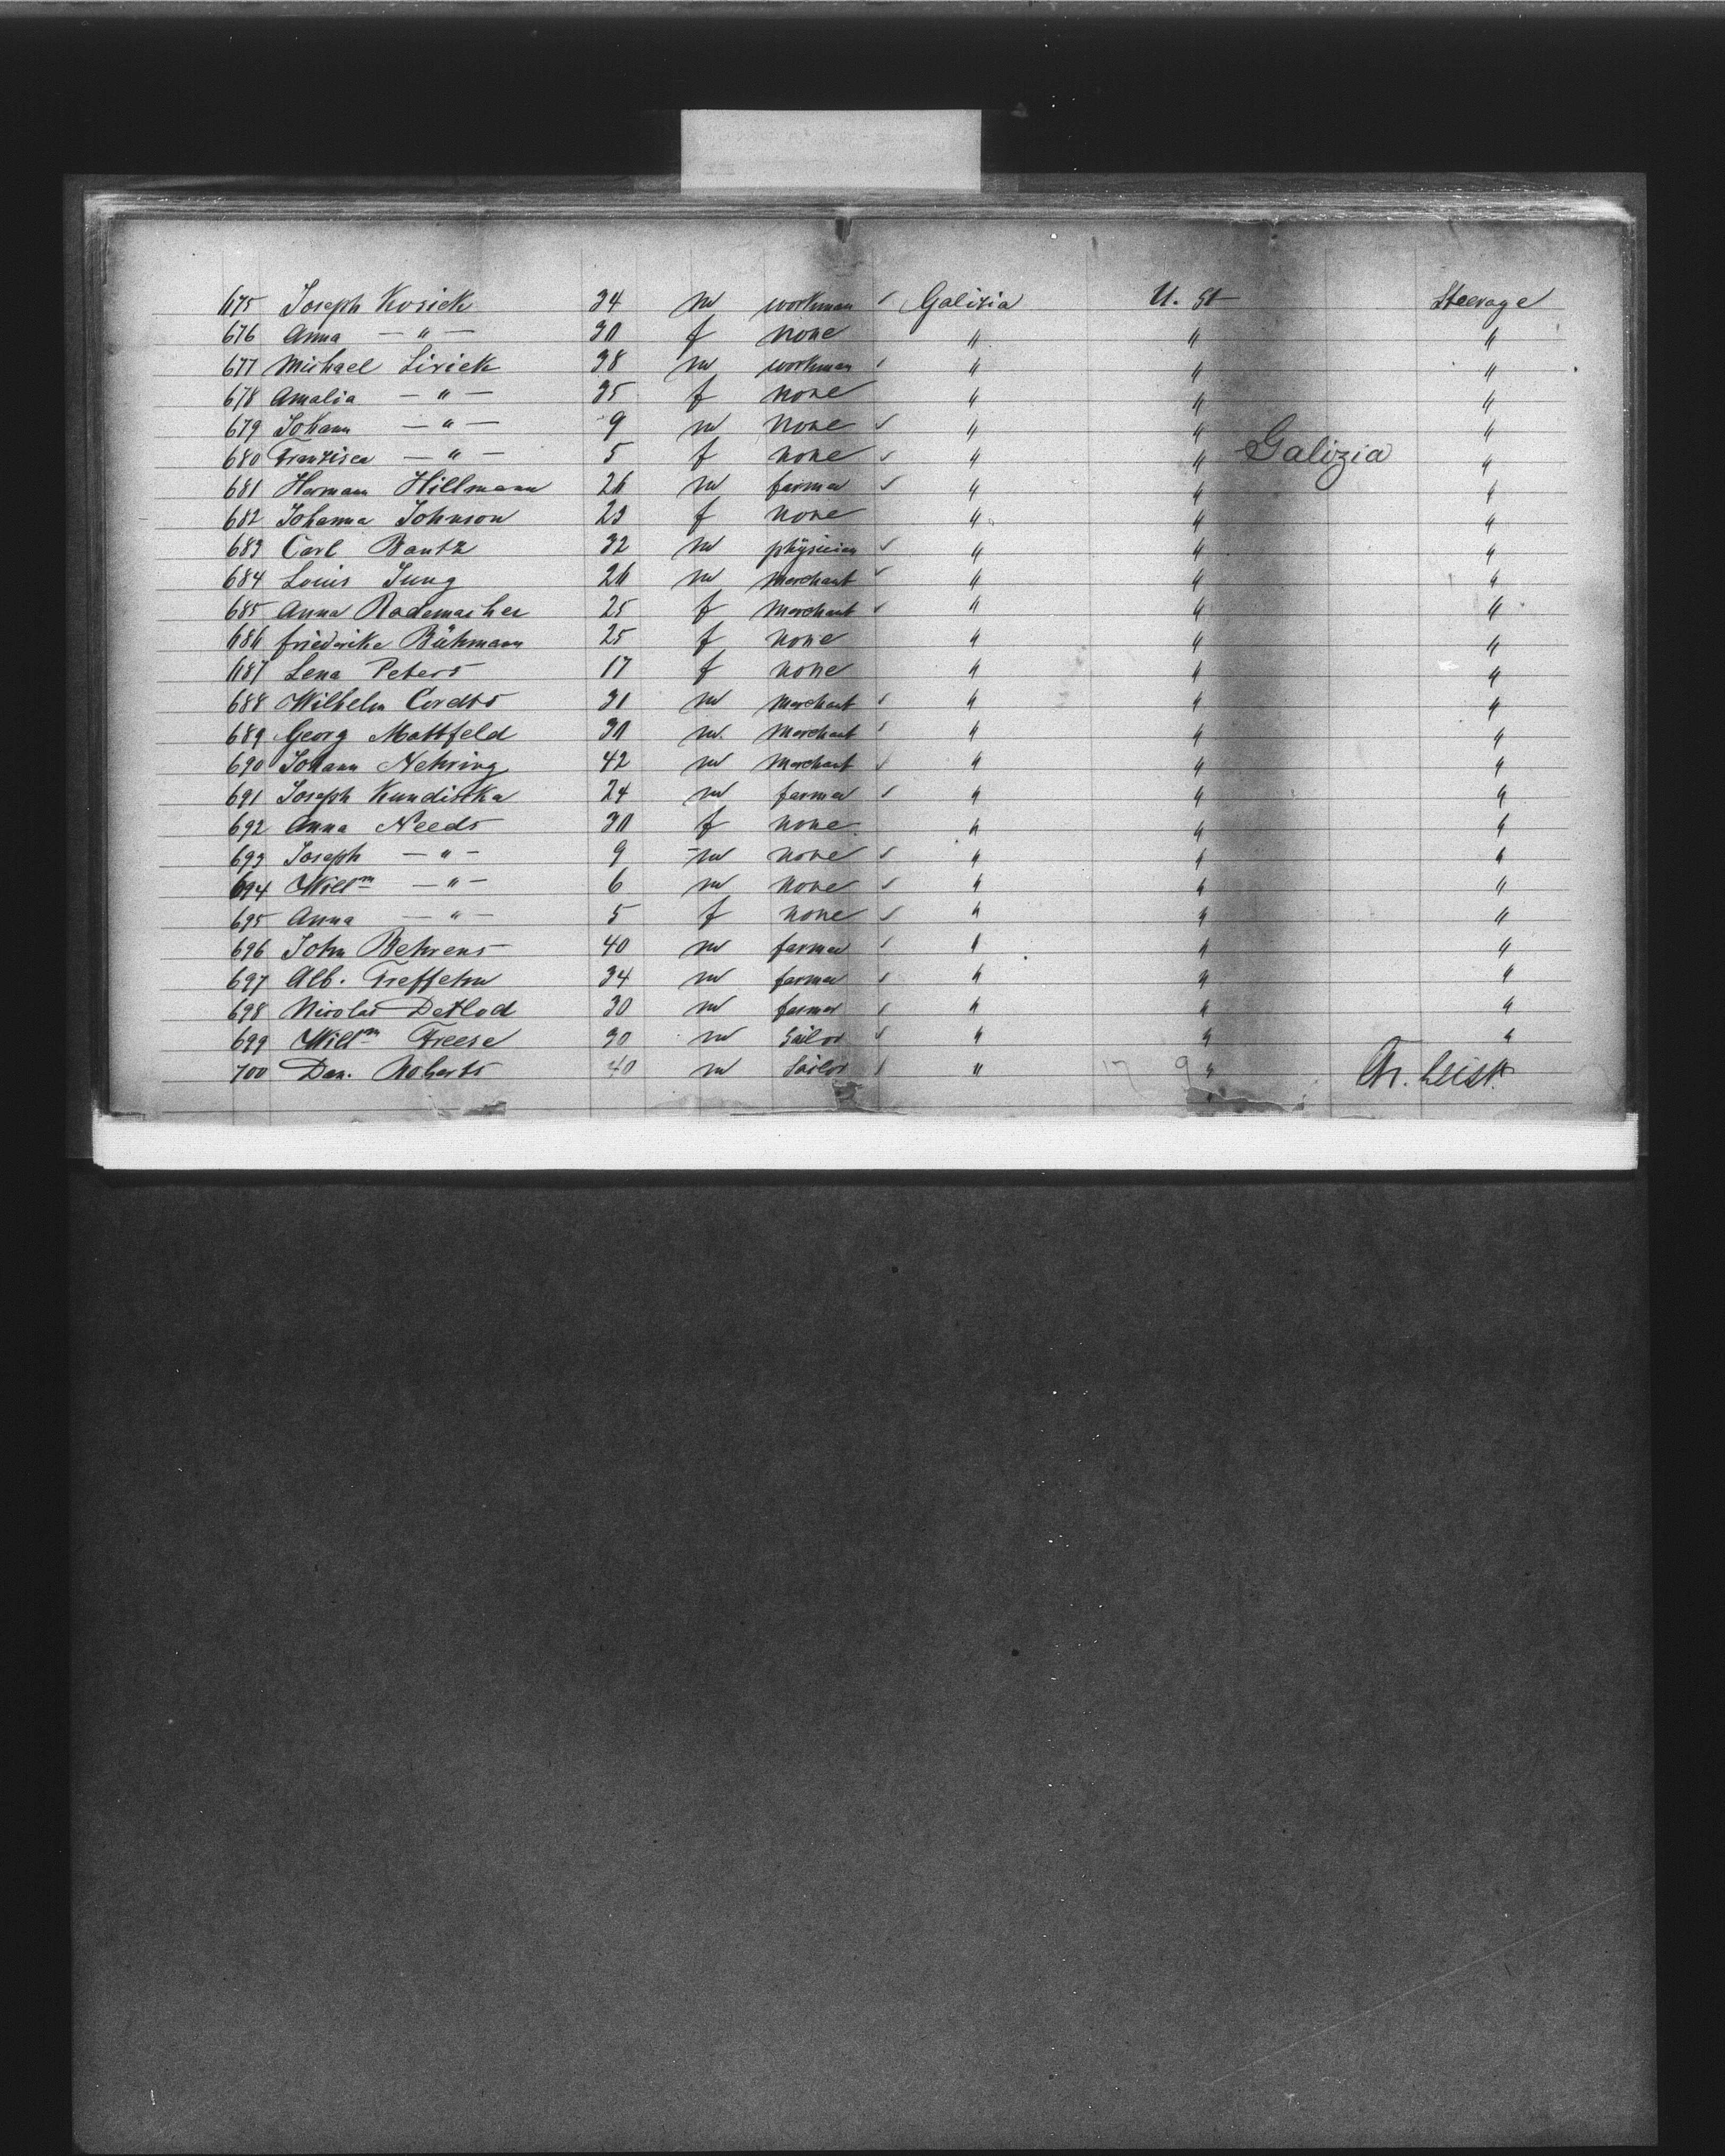 675 Joseph Kosick 34 m workman ✓ Galizia U. St Steerage
676 Anna — " — 30 f none " " "
677 Michael Lirick 38 m workman ✓ " " "
678 Amalia — " — 35 f none " " "
679 Johann — " — 9 m none ✓ " " "
680 Franzisca — " — 5 f none ✓ " " Galizia "
681 Hermann Hillmann 26 m farmer ✓ " " "
682 Johanna Johnson 23 f none " " "
683 Carl Bantz 32 m physician ✓ " " "
684 Louis Jung 26 m merchant ✓ " " "
685 Anna Rademacher 25 f merchant ✓ " " "
686 Friederike Bühmann 25 f none " " "
687 Lena Peters 17 f none " " "
688 Wilhelm Cordts 31 m merchant ✓ " " "
689 Georg Mattfeld 30 m merchant ✓ " " "
690 Johann Nehring 42 m merchant ✓ " " "
691 Joseph Kundistka 24 m farmer ✓ " " "
692 Anna Needs 30 f none " " "
693 Joseph — " — 9 m none ✓ " " "
694 Willm — " — 6 m none ✓ " " "
695 Anna — " — 5 f none ✓ " " "
696 John Behrens 40 m farmer ✓ " " "
697 Alb. Treffehn 34 m farmer ✓ " " "
698 Nicolas Detlod 30 m farmer ✓ " " "
699 Willm Freese 30 m Sailor ✓ " " "
700 Dan. Roberts 40 m Sailor ✓ " "
Ch. Leist